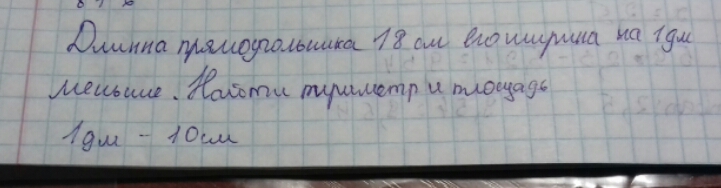 Длинна прямоугольника 18 см его ширина на 1дм
меньше. Найти периметр и площадь
1дм - 10см